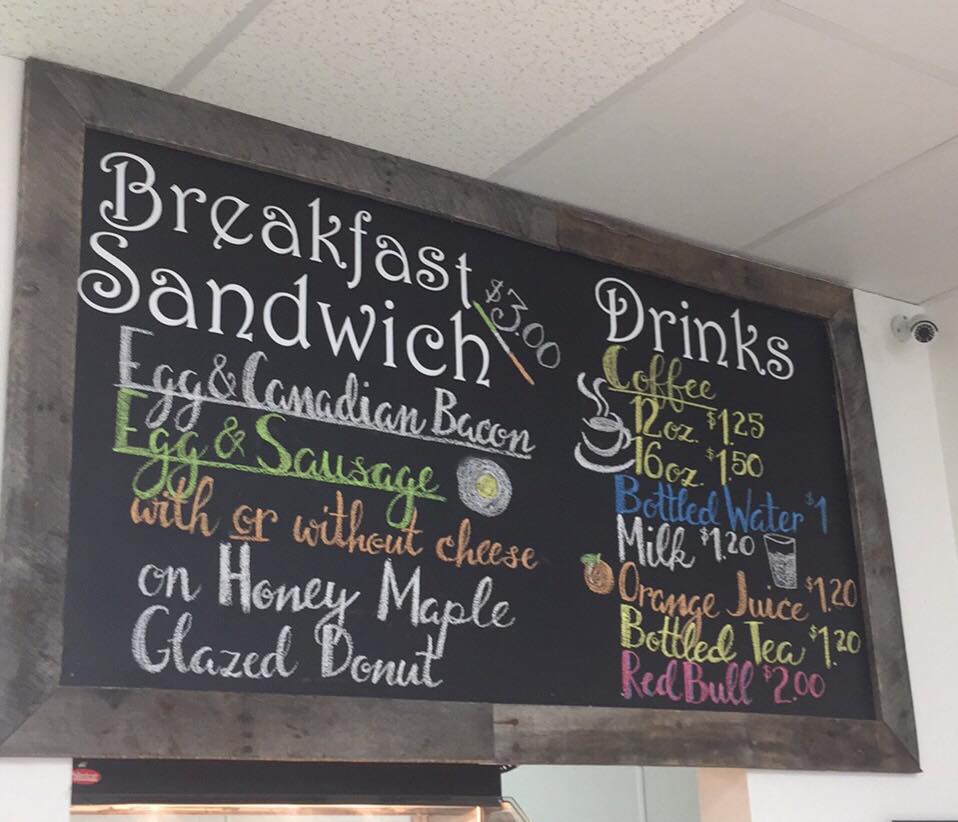 Breakfast
Sandwich $3.00
Egg & Canadian Bacon
Egg & Sausage
with or without cheese
on Honey Maple
Glazed Donut
Drinks
Coffee
12oz. $1.25
16oz. $1.50
Bottled Water $1
Milk $1.20
Orange Juice $1.20
Bottled Tea $1.20
Red Bull $2.00